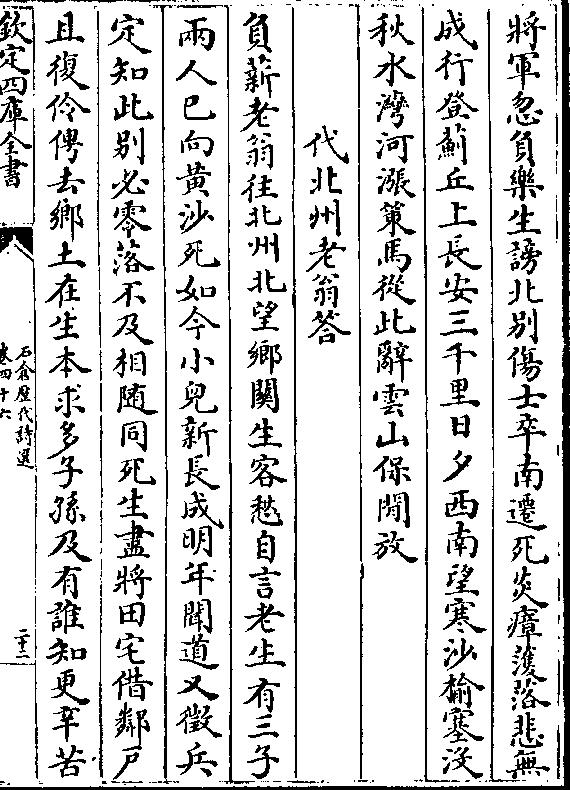 將軍忽負樂生謗北别傷士卒南遷死炎瘴濩落悲無
成行登薊丘上長安三千里日夕西南望寒沙榆塞沒
秋水灣河漲策馬從此辭雲山保閒放
代北州老翁答
負薪老翁往北州北望鄉關生客愁自言老生有三子
兩人已向黄沙死如今小兒新長成明年聞道又徵兵
定知此别必零落不及相随同死生盡將田宅借鄰戸
且復伶俜去鄉土在生本求多子孫及有誰知更辛苦
欽定四庫全書
石倉歷代詩選
卷四十六
二十二